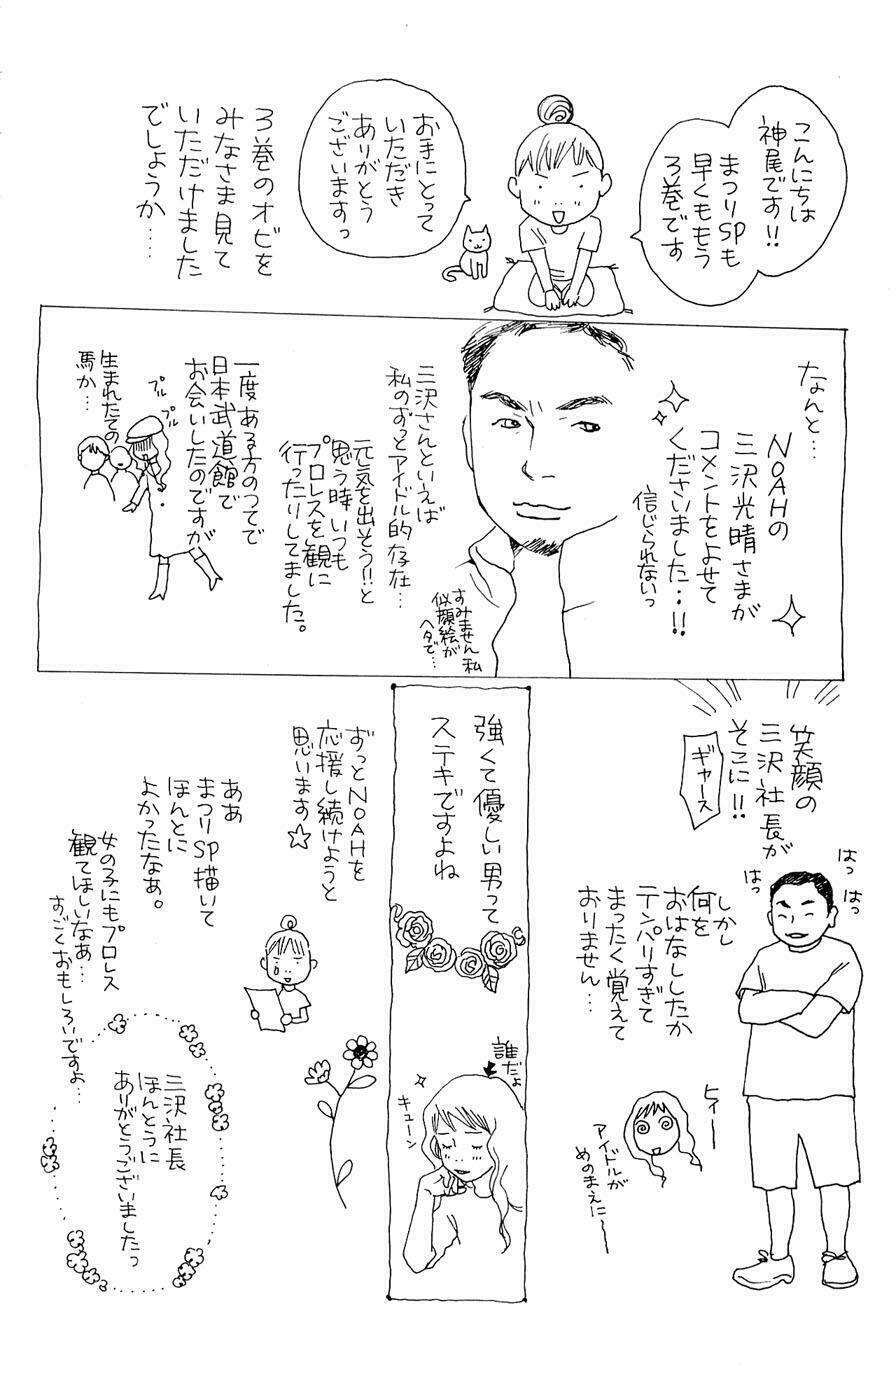 こんにちは
神尾です!!
まつりSPも
早くももう
3巻です
おまにとって
いただき
ありがとう
ございますっ
3巻のオビを
みなさま見て
いただけました
でしょうか……
なんと…
NOAHの
三沢光晴さまが
コメントをよせて
くださいました…!!
信じられないっ
三沢さんといえば
私のずっとアイドル的存在…
すみません私
似顔絵が
ヘタで…
元気を出そう!!と
思う時いつも
プロレスを観に
行ったりしてました。
一度ある方のつてで
日本武道館で
お会いしたのですが
プル
プル
生まれたての
馬か…
笑顔の
三沢社長が
そこに!!
ギャース
はっ
はっ
はっ
しかし
何を
おはなししたか
テンパりすぎて
まったく覚えて
おりません…
ヒィーー
アイドルが
めのまえに〜
強くて優しい男って
ステキですよね
誰だよ
キューン
ずっとNOAHを
応援し続けようと
思います☆
ああ
まつりSP描いて
ほんとに
よかったなぁ。
女の子にもプロレス
観てほしいなぁ…
すごくおもしろいですよ…
三沢社長
ほんとうに
ありがとうございましたっ